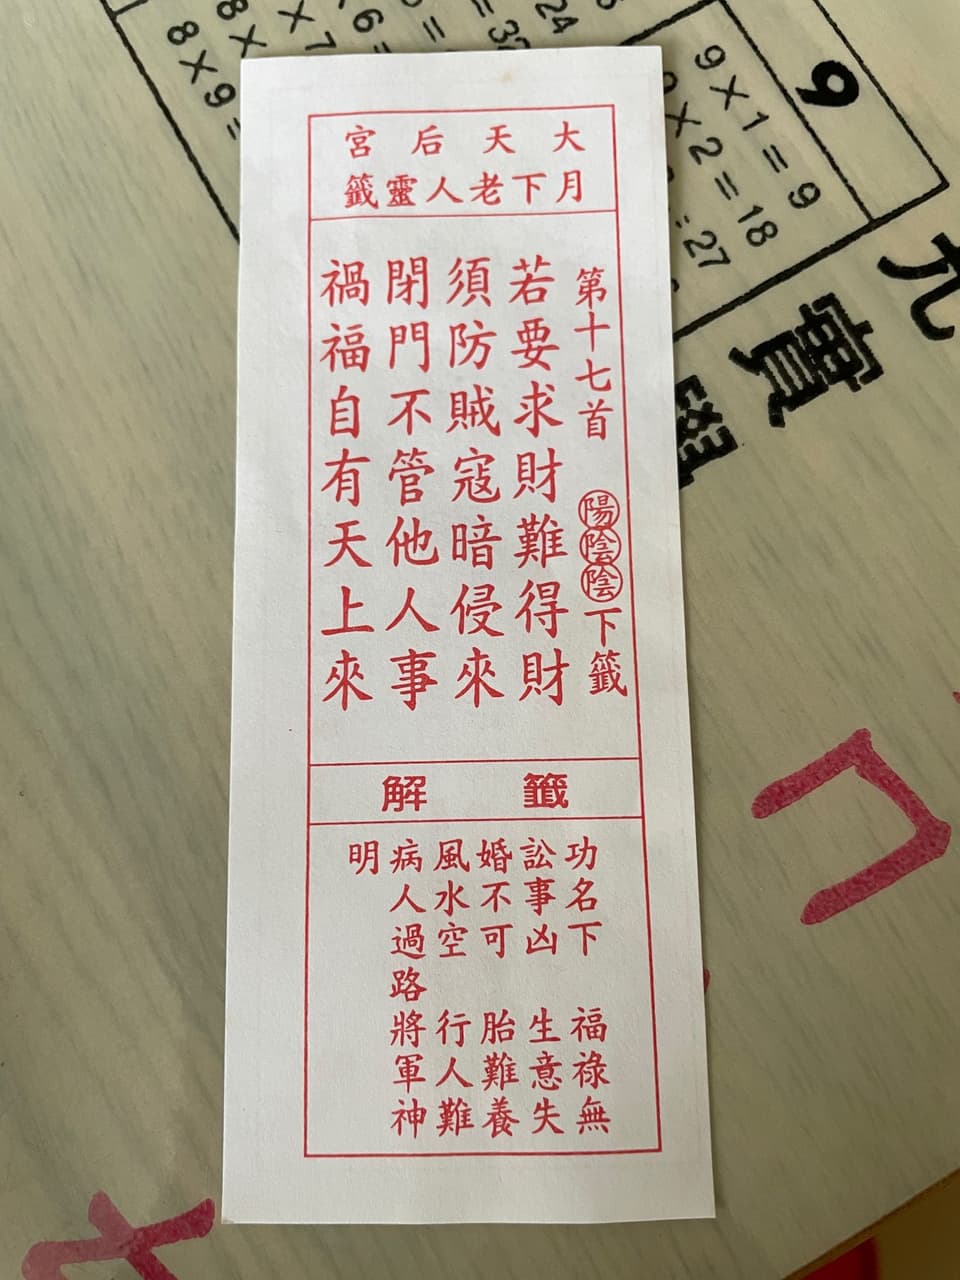 大天后宮
月下老人靈籤
第十七首 陽陰陰下籤
若要求財難得財
須防賊寇暗侵來
閉門不管他人事
禍福自有天上來
籤解
功名下 福祿無
訟事凶 生意失
婚不可 胎難養
風水空 行人難
病人過路將軍神
明
8×9=
9
9×1=9
×2=18
27
24
九